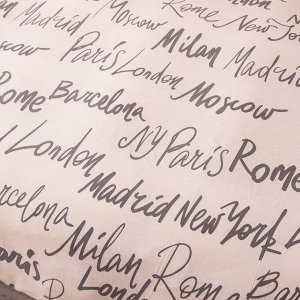 Madrid Rome New York
Rome Milan Madrid
Moscow París London Moscow
Rome Barcelona NY París Rome
London Madrid New York
Barcelona Milan Rome London
London